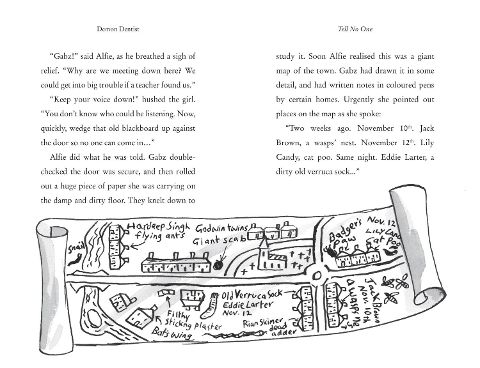 Demon Dentist
"Gabz!" said Alfie, as he breathed a sigh of
relief. "Why are we meeting down here? We
could get into big trouble if a teacher found us."
"Keep your voice down!" hushed the girl.
"You don't know who could be listening. Now,
quickly, wedge that old blackboard up against
the door so no one can come in…"
Alfie did what he was told. Gabz double-
checked the door was secure, and then rolled
out a huge piece of paper she was carrying on
the damp and dirty floor. They knelt down to
Tell No One
study it. Soon Alfie realised this was a giant
map of the town. Gabz had drawn it in some
detail, and had written notes in coloured pens
by certain homes. Urgently she pointed out
places on the map as she spoke:
"Two weeks ago. November 10th. Jack
Brown, a wasps' nest. November 12th. Lily
Candy, cat poo. Same night. Eddie Larter, a
dirty old verruca sock..."
Snail
Hardeep Singh
flying ants
Godwin twins
Giant scab
Badger's
Paw
Nov. 12
Cat Poo
Old Verruca Sock
Eddie Larter
Nov. 12
Filthy
Sticking plaster
Bat's wing
Rian Skiner
dead
adder
Jack Brown
Nov 10th